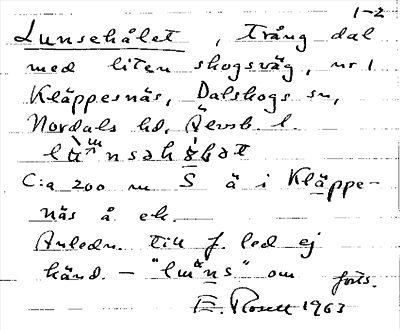 1-2
Lunsehålet, trång dal
med liten skogsväg, nr 1
Kläppesnäs, Dalskogs sn,
Nordals hd, Älvsb. l.
C:a 200 m S ä i Kläppe-
näs å ek.
Anledn. till f. led ej
känd. – "lmns" om forts.
E. Rosell 1963